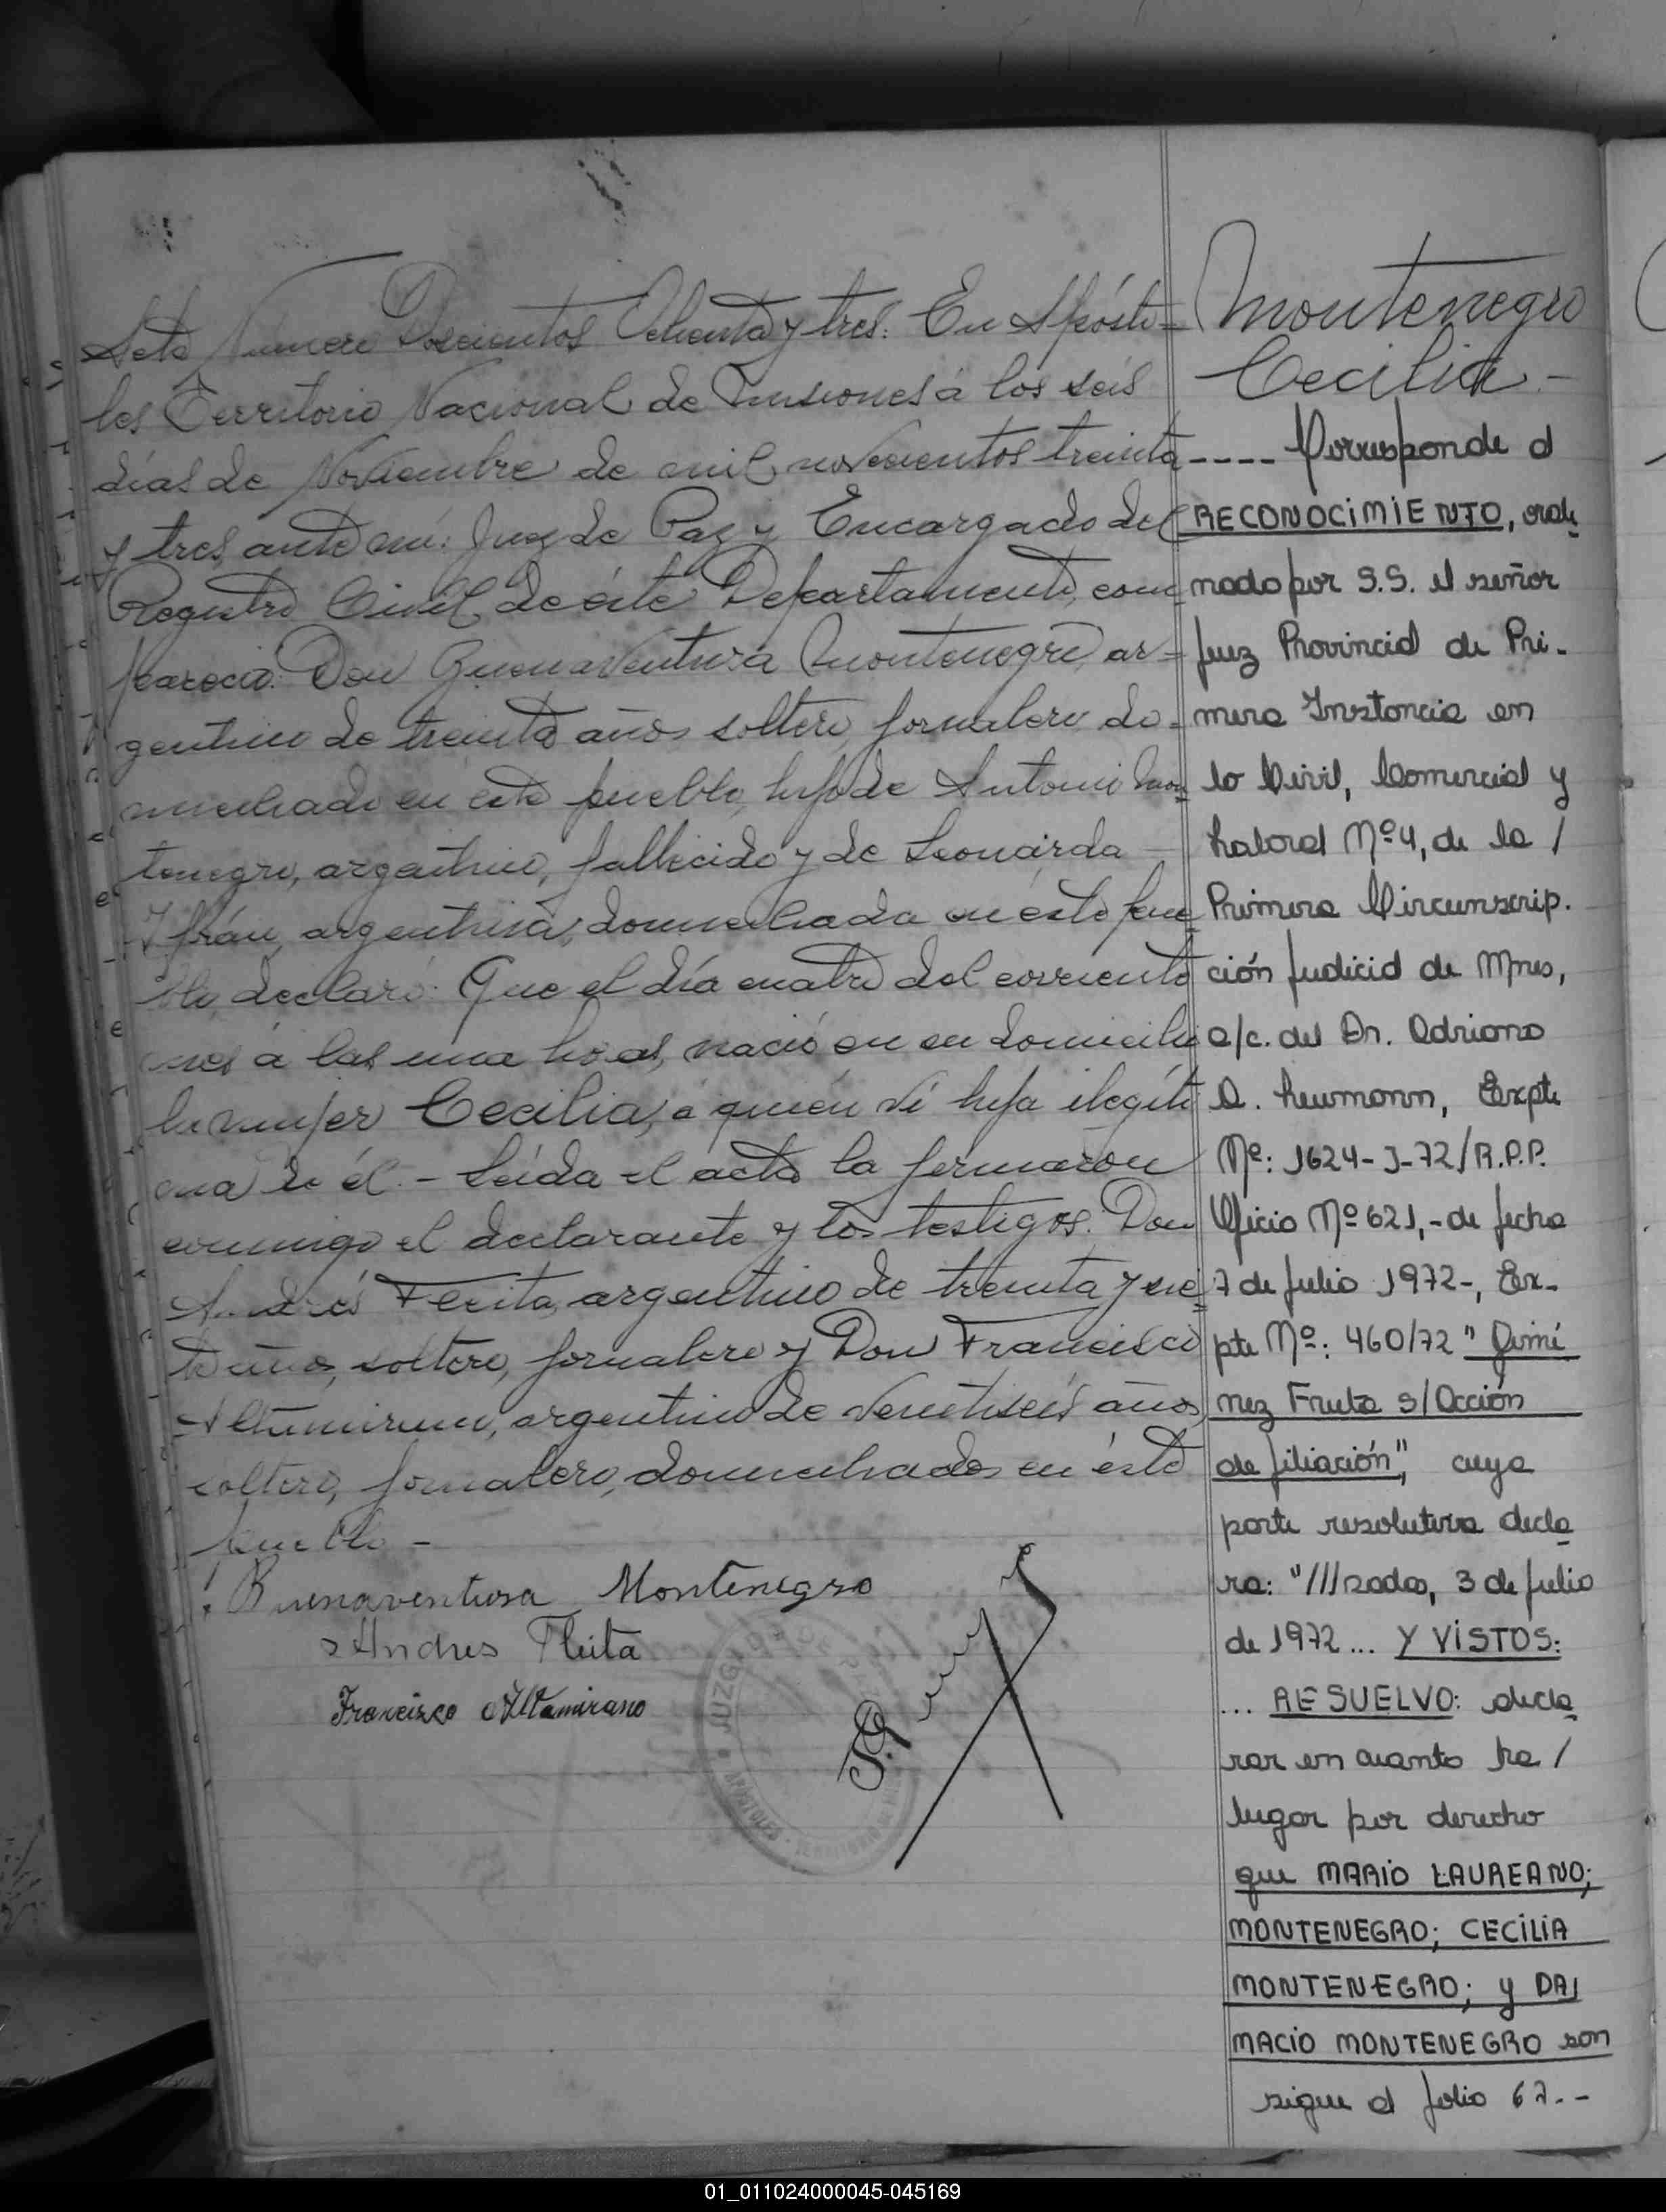 Acta Número Doscientos Ochenta y tres: En Apósto=
les Territorio Nacional de Misiones á los seis
días de Noviembre de mil novecientos treinta
y tres, ante mí: Juez de Paz y Encargado del
Registro Civil de éste Departamento, com
pareció: Don Buenaventura Montenegro, ar=
gentino de treinta años soltero, jornalero do=
miciliado en este pueblo, hijo de Antonio Mon
tenegro, argentino, fallecido y de Leonarda
Ifrán, argentina, domiciliada en éste pue
blo, declaró: Que el día cuatro del corriente
mes á las una horas, nació en su domicilio
la mujer Cecilia, á quién ví hija ilegíti
ma de él.- Leída el acta la firmaron
conmigo el declarante y los testigos: Don
Andrés Fleita, argentino de treinta y sie
te años, soltero, jornalero y Don Francisco
Altamirano, argentino de veintiseis años,
soltero, jornalero, domiciliados en éste
pueblo -
Buenaventura Montenegro
Andres Fleita
Francisco Altamirano
JUZGADO DE PAZ
APOSTOLES
Montenegro
Cecilia -
---- Corresponde al
RECONOCIMIENTO, orde
nado por S.S. el señor
Juez Provincial de Pri-
mera Instancia en
lo Civil, Comercial y
Laboral Nº4, de la /
Primera Circunscrip.
ción Judicial de Mnes,
a/c. del Dr. Adriano
D. Leumann, Expte
Nº: 1624-J-72/R.P.P.
Oficio Nº 621,-de fecha
7 de Julio 1972-, Ex-
pte Nº: 460/72 "Jimé
nez Fruta s/Acción
de filiación", cuya
parte resolutiva decla
ra: "///sadas, 3 de Julio
de 1972... Y VISTOS:
... RESUELVO: decla
rar en cuanto ha /
lugar por derecho
que MARIO LAUREANO;
MONTENEGRO; CECILIA
MONTENEGRO; y DAL
MACIO MONTENEGRO son
sigue al folio 67.--
01_011024000045-045169